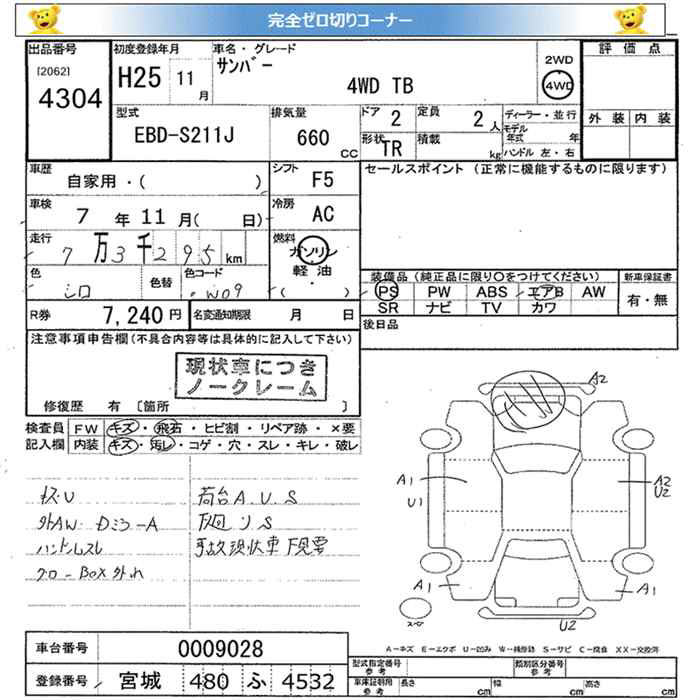 完全ゼロ切りコーナー
出品番号
[2062]
4304
初度登録年月
H25 11 月
車名・グレード
サンバー
4WD TB
2WD
4WD
評価点
外装 内装
型式
EBD-S211J
排気量
660 CC
ドア 2
定員 2 人
形状 TR
積載 kg
ディーラー・並行
モデル年式 年
ハンドル 左・右
車歴
自家用・( )
シフト F5
車検
7 年 11 月( 日)
冷房 AC
走行
7万3千295 km
燃料
ガソリン
軽油
・( )
色
シロ
色替
色コード
W09
R券 7,240 円
名変通知期限 月 日
セールスポイント (正常に機能するものに限ります)
装備品 (純正品に限り○をつけてください)
新車保証書
PS PW ABS エアB AW
SR ナビ TV カワ
有・無
後日品
注意事項申告欄(不具合内容等は具体的に記入して下さい)
現状車につき
ノークレーム
修復歴 有 [箇所 ]
検査員記入欄
FW キズ・飛石・ヒビ割・リペア跡・×要
内装 キズ・汚レ・コゲ・穴・スレ・キレ・破レ
荷台A.U.S
外AW Dミラ-A
下廻りS
ハンドルスレ
事故現状車 下見要
グローBOX外れ
A2
A1
U1
A2
U2
A1
A1
U2
A-キズ E-エクボ U-凹み W-補修跡 S-サビ C-腐食 XX-交換済
車台番号 0009028
登録番号 宮城 480 ふ 4532
型式指定番号 参考
類別区分番号 参考
車庫証明用 参考
長さ cm
幅 cm
高さ cm